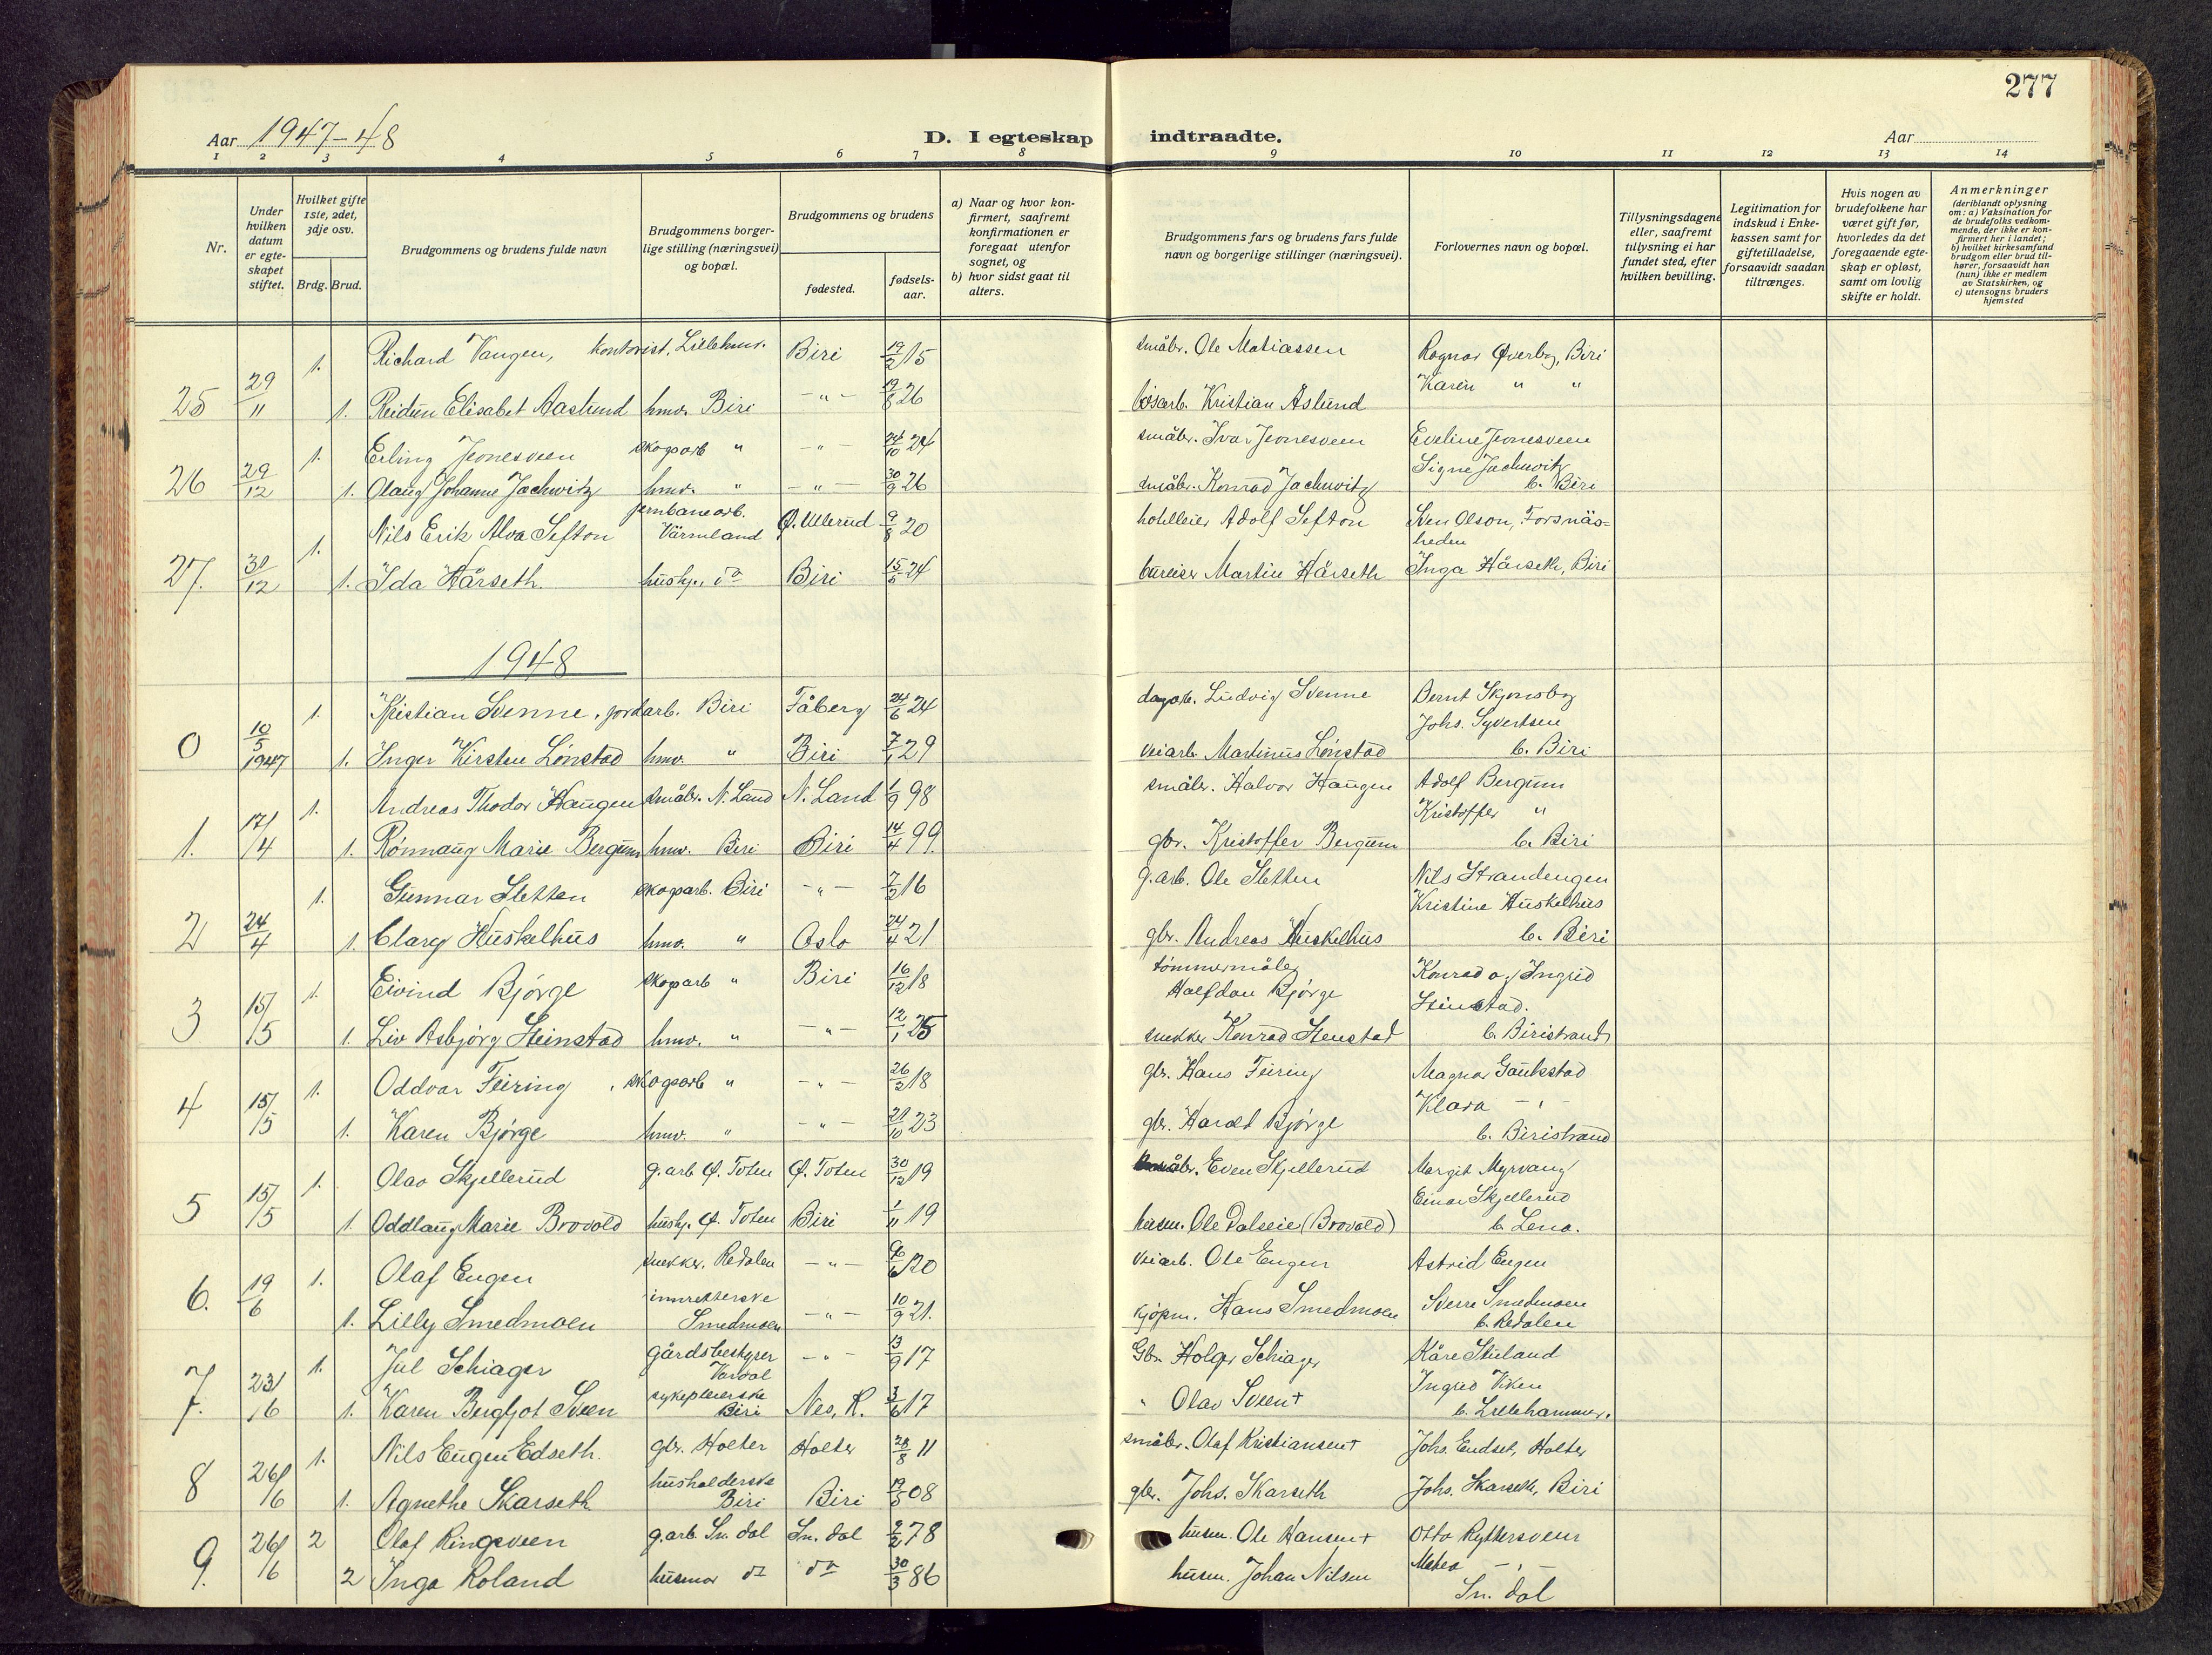 277
Aar 1947-48
D. I egteskap indtraadte.
Aar
1 2 3 4 5 6 7 8 9 10 11 12 13 14
Nr.
Under hvilken datum er egteskapet stiftet.
Hvilket gifte 1ste, 2det, 3dje osv.
Brdg. Brud.
Brudgommens og brudens fulde navn
Brudgommens borgerlige stilling (næringsvei) og bopæl.
Brudgommens og brudens
fødested.
fødselsaar.
a) Naar og hvor konfirmert, saafremt konfirmationen er foregaat utenfor sognet, og
b) hvor sidst gaat til alters.
Brudgommens fars og brudens fars fulde navn og borgerlige stillinger (næringsvei).
Forlovernes navn og bopæl.
Tillysningsdagene eller, saafremt tillysning ei har fundet sted, efter hvilken bevilling.
Legitimation for indskud i Enkekassen samt for giftetilladelse, forsaavidt saadan tiltrænges.
Hvis nogen av brudefolkene har været gift før, hvorledes da det foregaaende egteskap er opløst, samt om lovlig skifte er holdt.
Anmerkninger (deriblandt oplysning om: a) Vaksination for de brudefolks vedkommende, der ikke er konfirmert her i landet; b) hvilket kirkesamfund brudgom eller brud tilhører, forsaavidt han (hun) ikke er medlem av Statskirken, og c) utensogns bruders hjemsted
25 29/11 1. Richard Vangen, kontorist, Lillehmr. Biri 19/2 15 småbr. Ole Matiassen Ragnar Øverby, Biri
1. Reidun Elisabet Aaslund hmv. Biri -"- 19/8 26 Kristian Aslund Karen " "
26 29/12 1. Erling Jevnesveen skogsarb " -"- 24/10 24 småbr. Ivar Jevnesveen Eveline Jevnesveen
1. Olaug Johanne Jachwitz hmv. " -"- 30/9 26 småbr. Konrad Jachwitz Signe Jachwitz b. Biri
27. 30/12 1. Nils Erik Alva Sefton jernbanearb. Värmland Ø. Ullerud 9/8 20 hotelleier Adolf Sefton Sven Olson, Forsnäsheden
1. Ida Hårseth hushj., do Biri 15/5 24 bureiser Martin Hårseth Inga Hårseth, Biri
1948
0 10/5 1947 1. Kristian Svenne, jordarb. Biri Fåberg 24/6 24 dagarb. Ludvig Svenne Bernt Skjonsby
1. Inger Kirsten Lønstad hmv. " Biri 7/1 29 veiarb. Martinus Lønstad Johs. Syvertsen b. Biri
1. 17/4 1. Andreas Thodor Haugen småbr. N. Land N. Land 1/9 98 småbr. Halvor Haugen Adolf Bergum
1. Rønnaug Marie Bergum hmv. Biri Biri 14/4 99. gbr. Kristoffer Bergum Kristoffer " b. Biri
2 24/4 1. Gunnar Sletten skogsarb. Biri -"- 7/2 16 g.arb. Ole Sletten Nils Strandengen
1. Clary Huskelhus hmv. " Oslo 24/4 21 gbr. Andreas Huskelhus Kristine Huskelhus b. Biri
3 15/5 1. Eivind Bjørge skogsarb " Biri 16/12 18 tømmermåler Halfdan Bjørge Konrad og Ingrid
1. Liv Asbjørg Steinstad hmv. " -"- 12/1 25 snekker Konrad Stenstad Stenstad. b. Biristrand
4 15/5 1. Oddvar Feiring, skogsarb " -"- 26/2 18 gbr. Hans Feiring Magnar Gaukstad
1. Karen Bjørge hmv. " -"- 21/10 23 gbr. Harald Bjørge Klara -"- b. Biristrand
5 15/5 1. Olav Skjellerud g.arb Ø. Toten Ø. Toten 30/12 19 småbr. Even Skjellerud Margit Myrvang
1. Oddlaug Marie Brovold hushj. Ø. Toten Biri 1/11 19 husm. Ole Dalseie (Brovold) Einar Skjellerud b. Lena.
6. 19/6 1. Olaf Engen snekker. Redalen -"- 9/6 20 veiarb. Ole Engen Astrid Engen
1. Lilly Smedmoen Smedmoen -"- 10/9 21. kjøpm. Hans Smedmoen Sverre Smedmoen b. Redalen
7. 23/6 1. Jul Schiager gårdsbestyrer Vardal -"- 13/9 17 Gbr. Holger Schiager Kåre Stuland
1. Karen Bergljot Sveen sykepleierske Biri Nes, R. 3/6 17 " Olav Sveen+ Ingrid Viken b. Lillehammer.
8 26/6 1. Nils Eugen Edseth. gbr. Holter Holter 28/8 11 småbr. Olaf Kristiansen+ Johs. Endset, Holter
1. Agnethe Skarseth husholderske Biri Biri 19/5 08 gbr. Johs. Skarseth Johs. Skarseth, Biri
9. 26/6 2 Olaf Ringsveen g.arb. Sn. dal Sn. dal 2/2 78 husm. Ole Hansen+ Otto Ryttersveen
2 Inga Roland husmor do do 30/3 86 husm. Johan Nilsen Mathea -"- Sn. dal